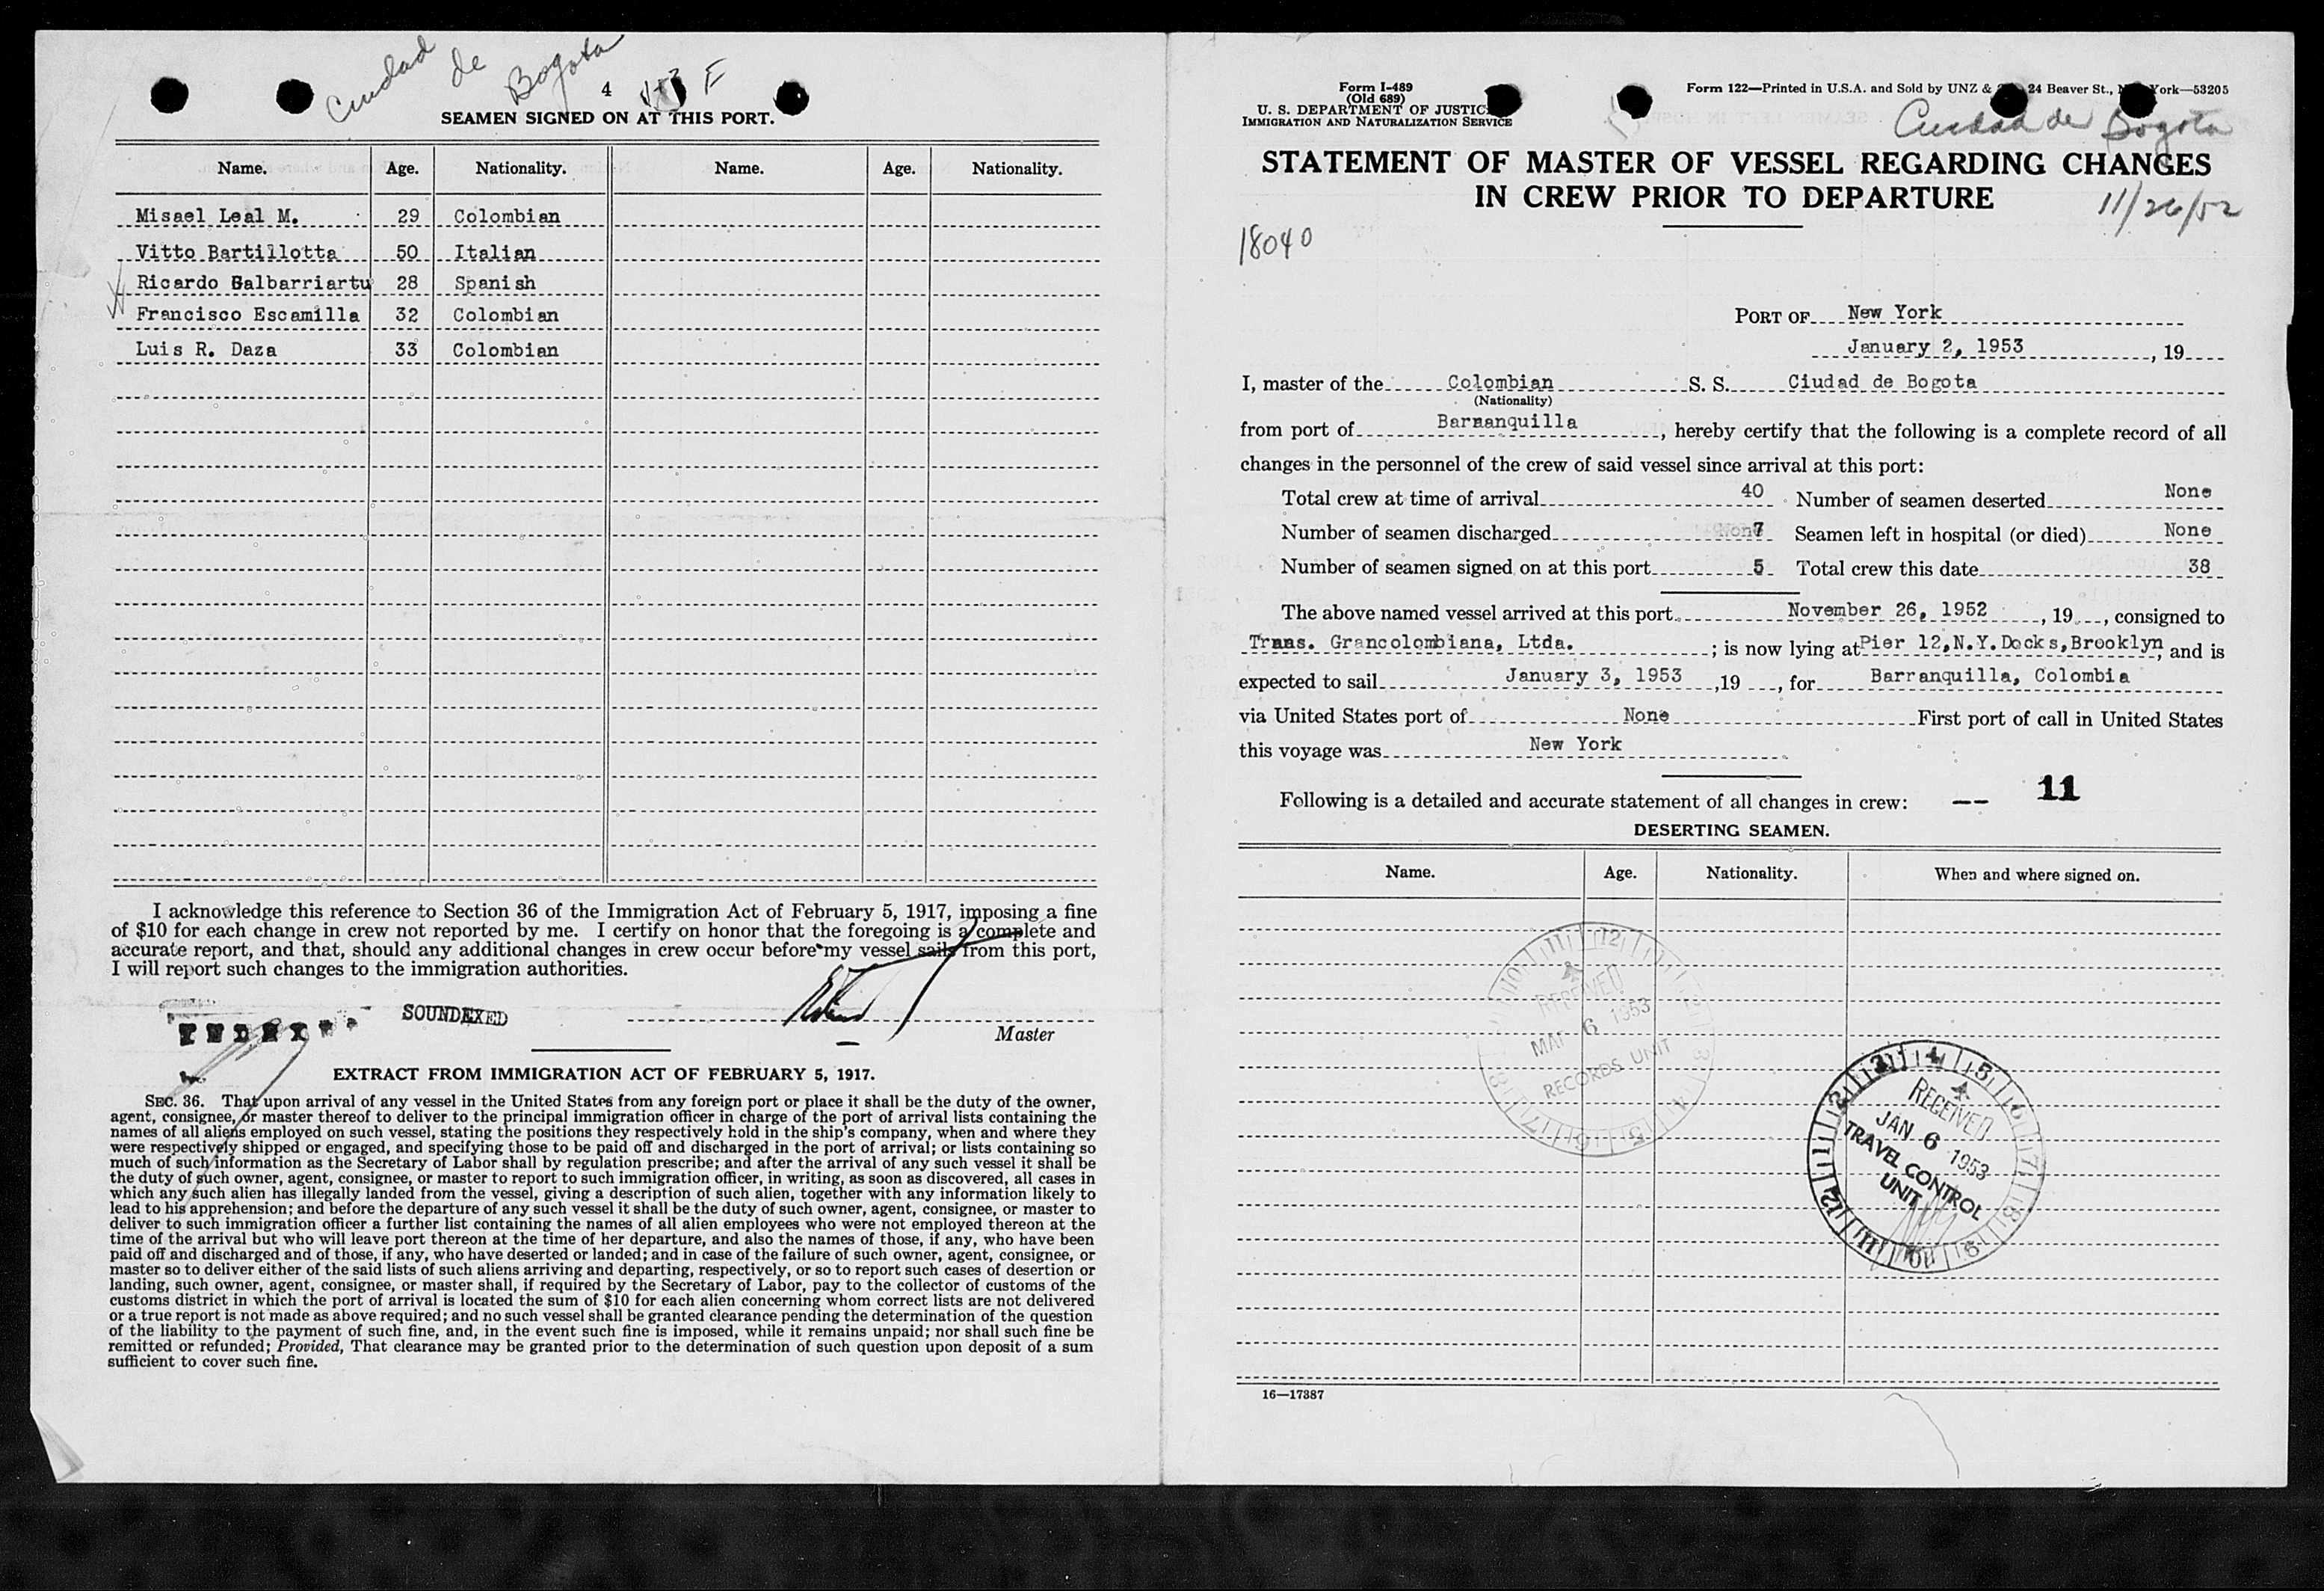 Ciudad de Bogota
4
SEAMEN SIGNED ON AT THIS PORT.
Name. Age. Nationality. Name. Age. Nationality.
Misael Leal M. 29 Colombian
Vitto Bartillotta 50 Italian
Ricardo Galbarriartu 28 Spanish
Francisco Escamilla 32 Colombian
Luis R. Daza 33 Colombian
I acknowledge this reference to Section 36 of the Immigration Act of February 5, 1917, imposing a fine
of $10 for each change in crew not reported by me. I certify on honor that the foregoing is a complete and
accurate report, and that, should any additional changes in crew occur before my vessel sails from this port,
I will report such changes to the immigration authorities.
SOUNDEXED
Master
EXTRACT FROM IMMIGRATION ACT OF FEBRUARY 5, 1917.
SEC. 36. That upon arrival of any vessel in the United States from any foreign port or place it shall be the duty of the owner,
agent, consignee, or master thereof to deliver to the principal immigration officer in charge of the port of arrival lists containing the
names of all aliens employed on such vessel, stating the positions they respectively hold in the ship's company, when and where they
were respectively shipped or engaged, and specifying those to be paid off and discharged in the port of arrival; or lists containing so
much of such information as the Secretary of Labor shall by regulation prescribe; and after the arrival of any such vessel it shall be
the duty of such owner, agent, consignee, or master to report to such immigration officer, in writing, as soon as discovered, all cases in
which any such alien has illegally landed from the vessel, giving a description of such alien, together with any information likely to
lead to his apprehension; and before the departure of any such vessel it shall be the duty of such owner, agent, consignee, or master to
deliver to such immigration officer a further list containing the names of all alien employees who were not employed thereon at the
time of the arrival but who will leave port thereon at the time of her departure, and also the names of those, if any, who have been
paid off and discharged and of those, if any, who have deserted or landed; and in case of the failure of such owner, agent, consignee, or
master so to deliver either of the said lists of such aliens arriving and departing, respectively, or so to report such cases of desertion or
landing, such owner, agent, consignee, or master shall, if required by the Secretary of Labor, pay to the collector of customs of the
customs district in which the port of arrival is located the sum of $10 for each alien concerning whom correct lists are not delivered
or a true report is not made as above required; and no such vessel shall be granted clearance pending the determination of the question
of the liability to the payment of such fine, and, in the event such fine is imposed, while it remains unpaid; nor shall such fine be
remitted or refunded; Provided, That clearance may be granted prior to the determination of such question upon deposit of a sum
sufficient to cover such fine.
Form I-489
(Old 689)
U. S. DEPARTMENT OF JUSTICE
IMMIGRATION AND NATURALIZATION SERVICE
Form 122—Printed in U.S.A. and Sold by UNZ & 24 Beaver St., New York—53205
Ciudad de Bogota
STATEMENT OF MASTER OF VESSEL REGARDING CHANGES
IN CREW PRIOR TO DEPARTURE
11/26/52
18040
PORT OF New York
January 2, 1953, 19
I, master of the Colombian S. S. Ciudad de Bogota
(Nationality)
from port of Barranquilla, hereby certify that the following is a complete record of all
changes in the personnel of the crew of said vessel since arrival at this port:
Total crew at time of arrival 40 Number of seamen deserted None
Number of seamen discharged 7 Seamen left in hospital (or died) None
Number of seamen signed on at this port 5 Total crew this date 38
The above named vessel arrived at this port November 26, 1952, 19, consigned to
Trans. Grancolombiana, Ltda.; is now lying at Pier 12,N.Y.Docks,Brooklyn, and is
expected to sail January 3, 1953, 19, for Barranquilla, Colombia
via United States port of None First port of call in United States
this voyage was New York
Following is a detailed and accurate statement of all changes in crew: -- 11
DESERTING SEAMEN.
Name. Age. Nationality. When and where signed on.
RECEIVED
MAR 6 1953
RECORDS UNIT
RECEIVED
JAN 6 1953
TRAVEL CONTROL
UNIT
16—17387